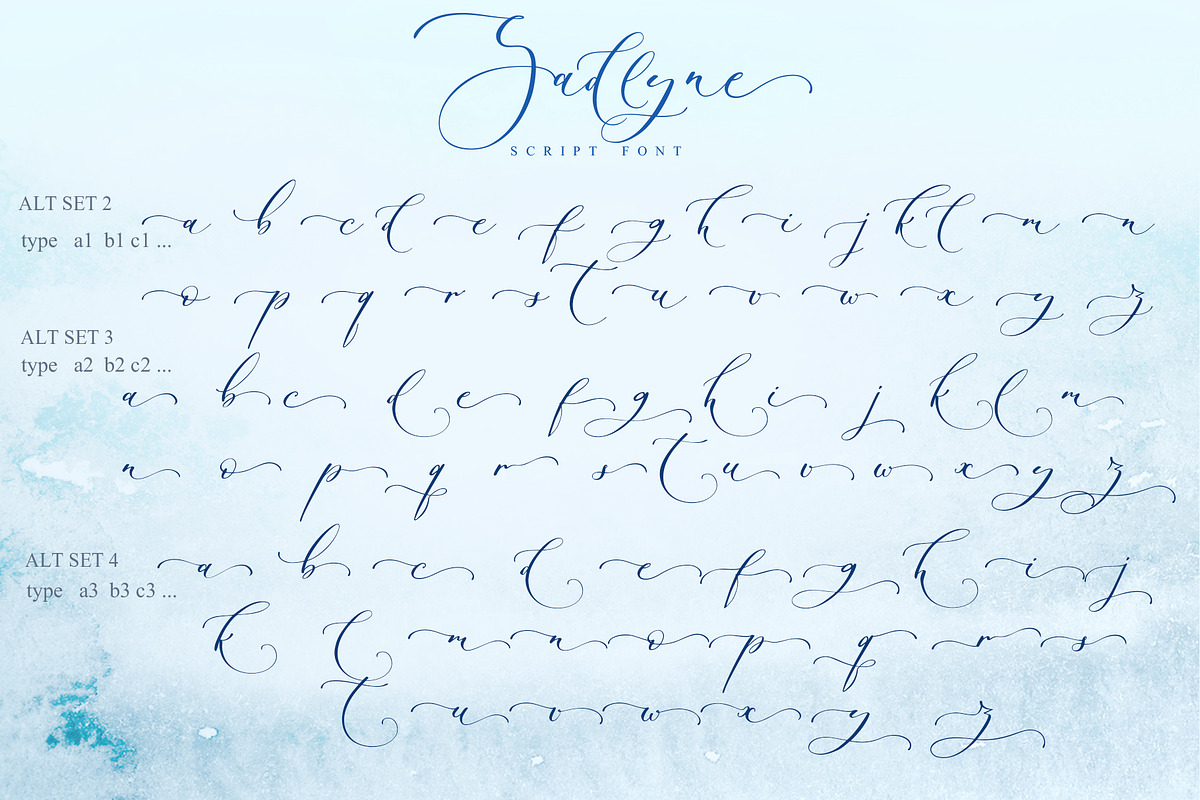 Sadlyne
SCRIPT FONT
ALT SET 2
type a1 b1 c1 ...
a b c d e f g h i j k l m n
o p q r s t u v w x y z
ALT SET 3
type a2 b2 c2 ...
a b c d e f g h i j k l m
n o p q r s t u v w x y z
ALT SET 4
type a3 b3 c3 ...
a b c d e f g h i j
k l m n o p q r s
t u v w x y z